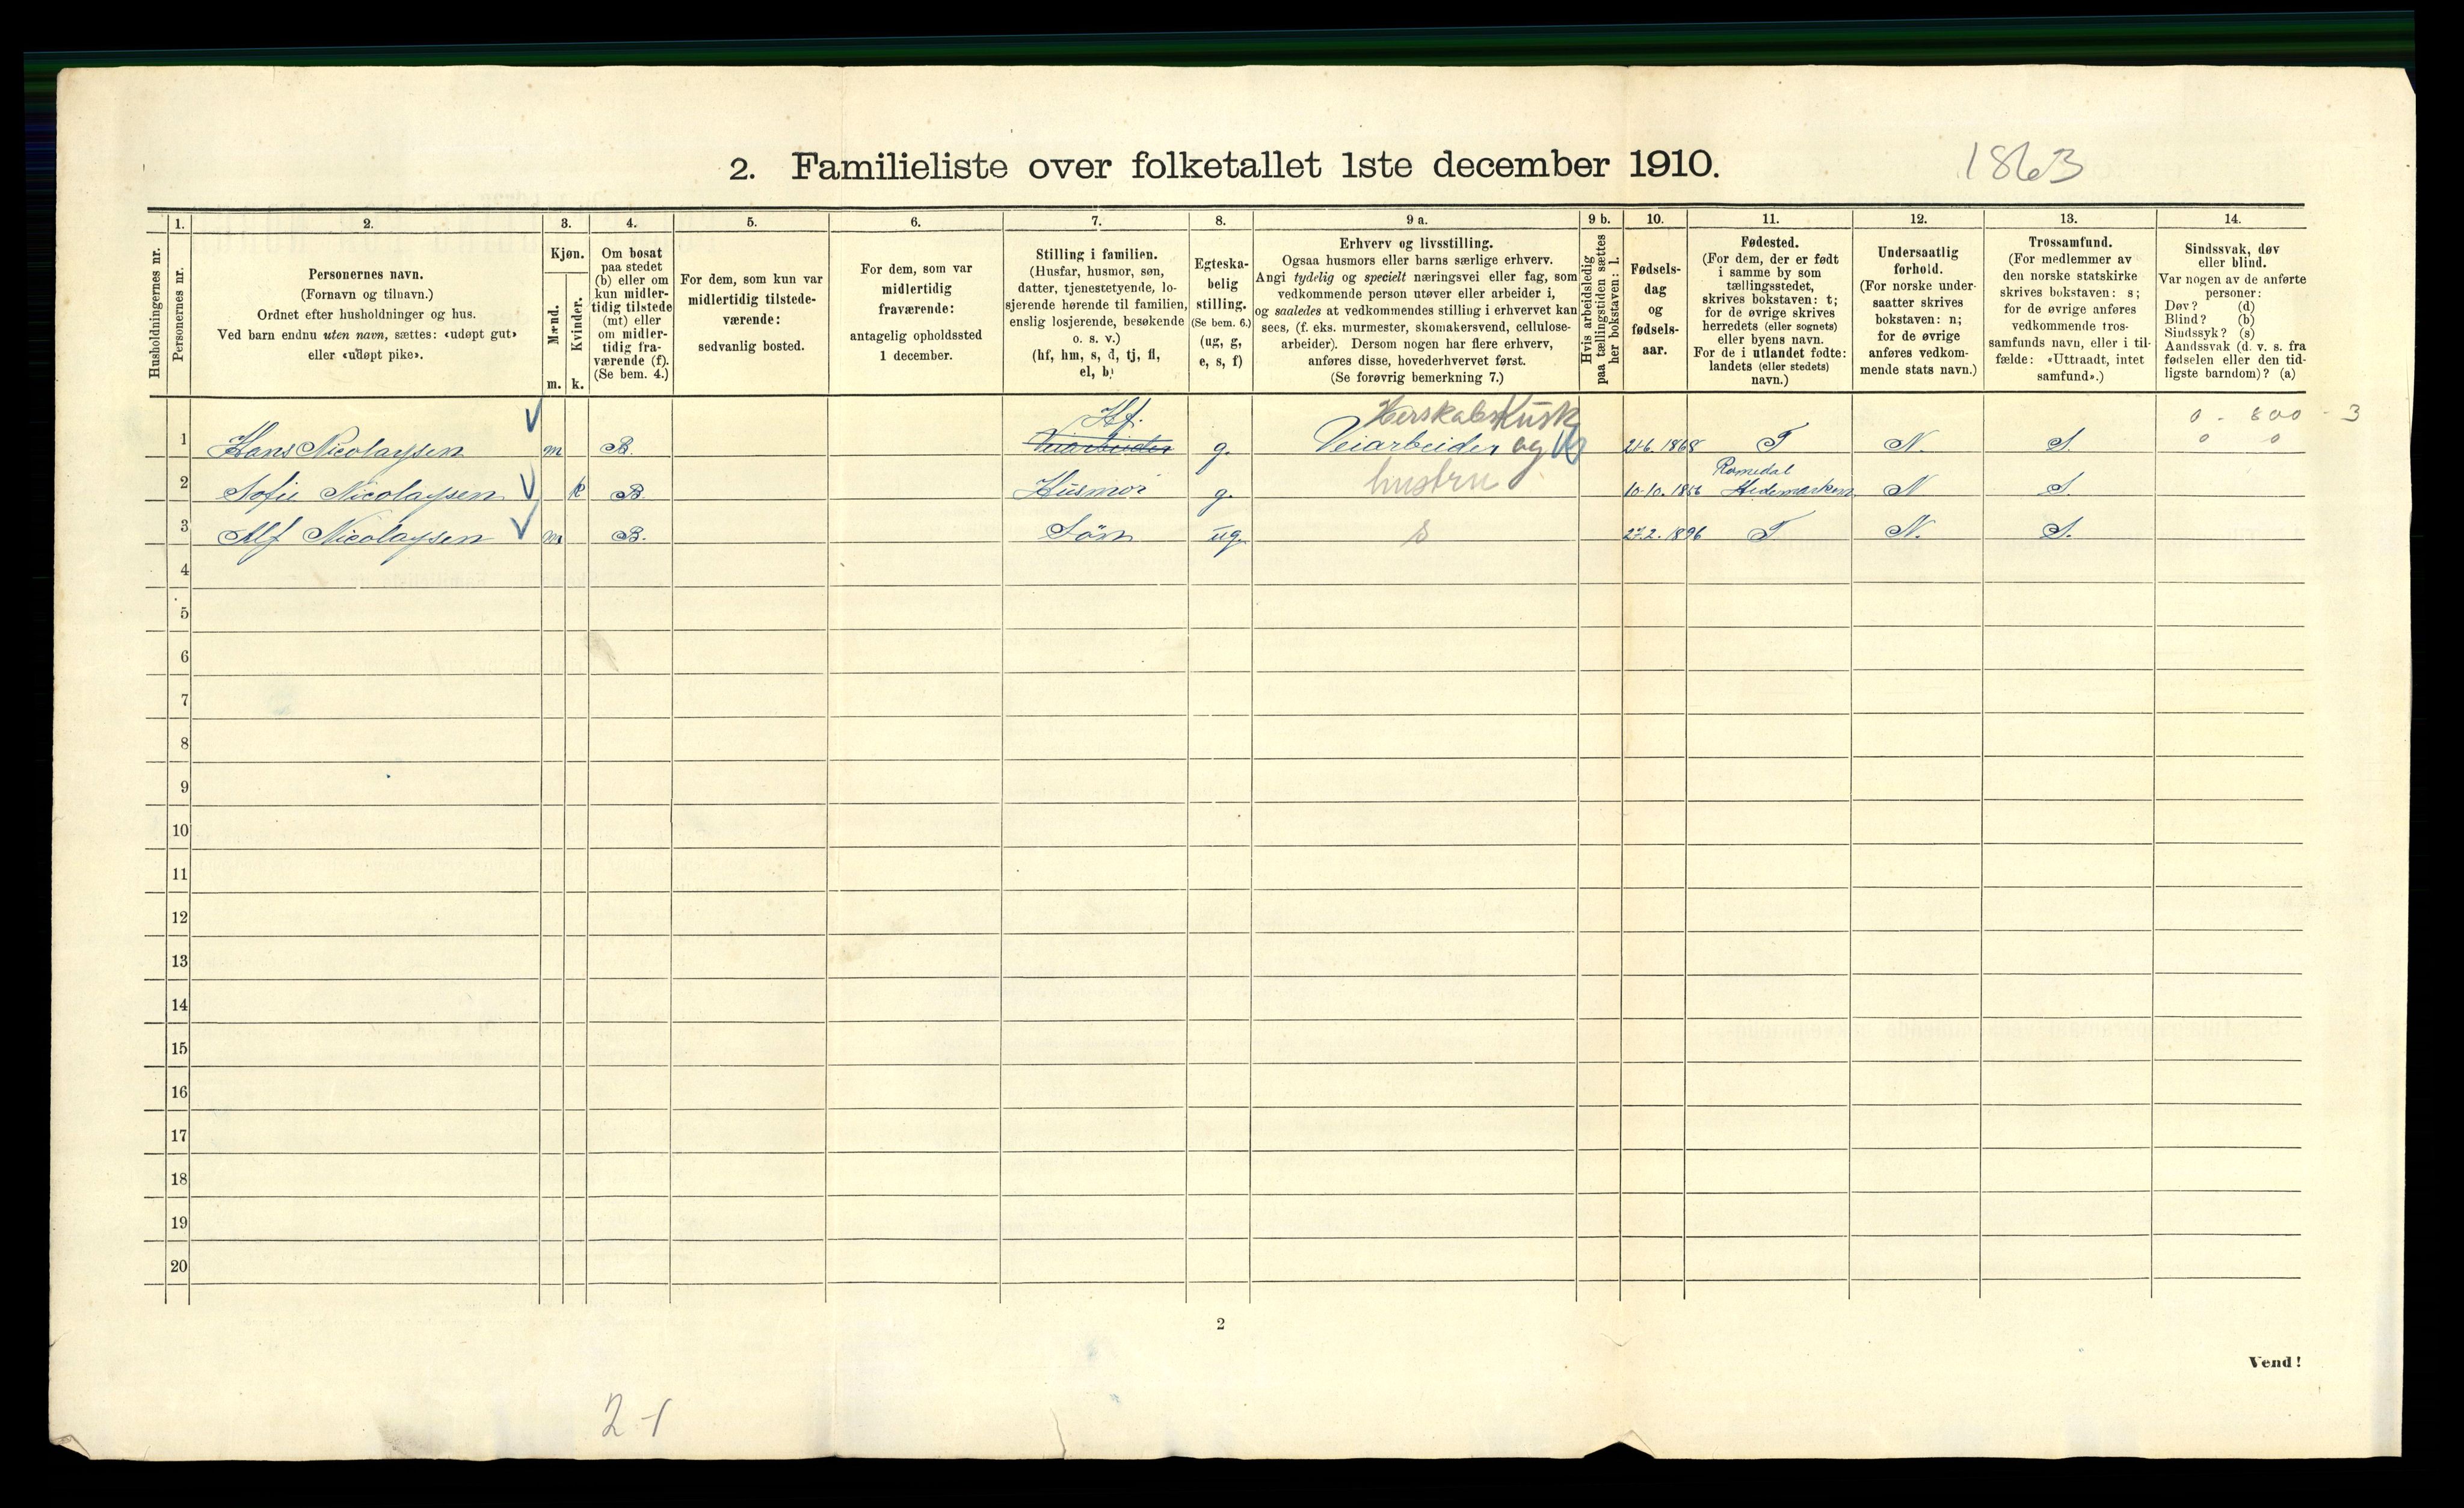 2. Familieliste over folketallet 1ste december 1910.
1863
Husholdningernes nr.
1.
Personernes nr.
2.
Personernes navn.
(Fornavn og tilnavn.)
Ordnet efter husholdninger og hus.
Ved barn endnu uten navn, sættes: «udøpt gut»
eller «udøpt pike».
3.
Kjøn.
Mænd.
Kvinder.
m. k.
4.
Om bosat
paa stedet
(b) eller om
kun midler-
tidig tilstede
(mt) eller
om midler-
tidig fra-
værende (f).
(Se bem. 4.)
5.
For dem, som kun var
midlertidig tilstede-
værende:
sedvanlig bosted.
6.
For dem, som var
midlertidig
fraværende:
antagelig opholdssted
1 december.
7.
Stilling i familien.
(Husfar, husmor, søn,
datter, tjenestetyende, lo-
sjerende hørende til familien,
enslig losjerende, besøkende
o. s. v.)
(hf, hm, s, d, tj, fl,
el, b)
8.
Egteska-
belig
stilling.
(Se bem. 6.)
(ug, g,
e, s, f)
9 a.
Erhverv og livsstilling.
Ogsaa husmors eller barns særlige erhverv.
Angi tydelig og specielt næringsvei eller fag, som
vedkommende person utøver eller arbeider i,
og saaledes at vedkommendes stilling i erhvervet kan
sees, (f. eks. murmester, skomakersvend, cellulose-
arbeider). Dersom nogen har flere erhverv,
anføres disse, hovederhvervet først.
(Se forøvrig bemerkning 7.)
9 b.
Hvis arbeidsledig
paa tællingstiden sættes
her bokstaven: l.
10.
Fødsels-
dag
og
fødsels-
aar.
11.
Fødested.
(For dem, der er født
i samme by som
tællingsstedet,
skrives bokstaven: t;
for de øvrige skrives
herredets (eller sognets)
eller byens navn.
For de i utlandet fødte:
landets (eller stedets)
navn.)
12.
Undersaatlig
forhold.
(For norske under-
saatter skrives
bokstaven: n;
for de øvrige
anføres vedkom-
mende stats navn.)
13.
Trossamfund.
(For medlemmer av
den norske statskirke
skrives bokstaven: s;
for de øvrige anføres
vedkommende tros-
samfunds navn, eller i til-
fælde: «Uttraadt, intet
samfund».)
14.
Sindssvak, døv
eller blind.
Var nogen av de anførte
personer:
Døv? (d)
Blind? (b)
Sindssyk? (s)
Aandssvak (d. v. s. fra
fødselen eller den tid-
ligste barndom)? (a)
Hf. Herskabskusk 0 - 800 - 3
1 Hans Nicolaysen m B. Veiarbeider g. Veiarbeider og T N. S. 0 0
Romedal
2 Sofie Nicolaysen k B. Husmor g. hustru 10-10. 1856 Hedemarken N S.
3 Alf Nicolaysen m B. Søn ug. s 27.2. 1896 T N. S.
4
5
6
7
8
9
10
11
12
13
14
15
16
17
18
19
20
2
Vend!
2-1